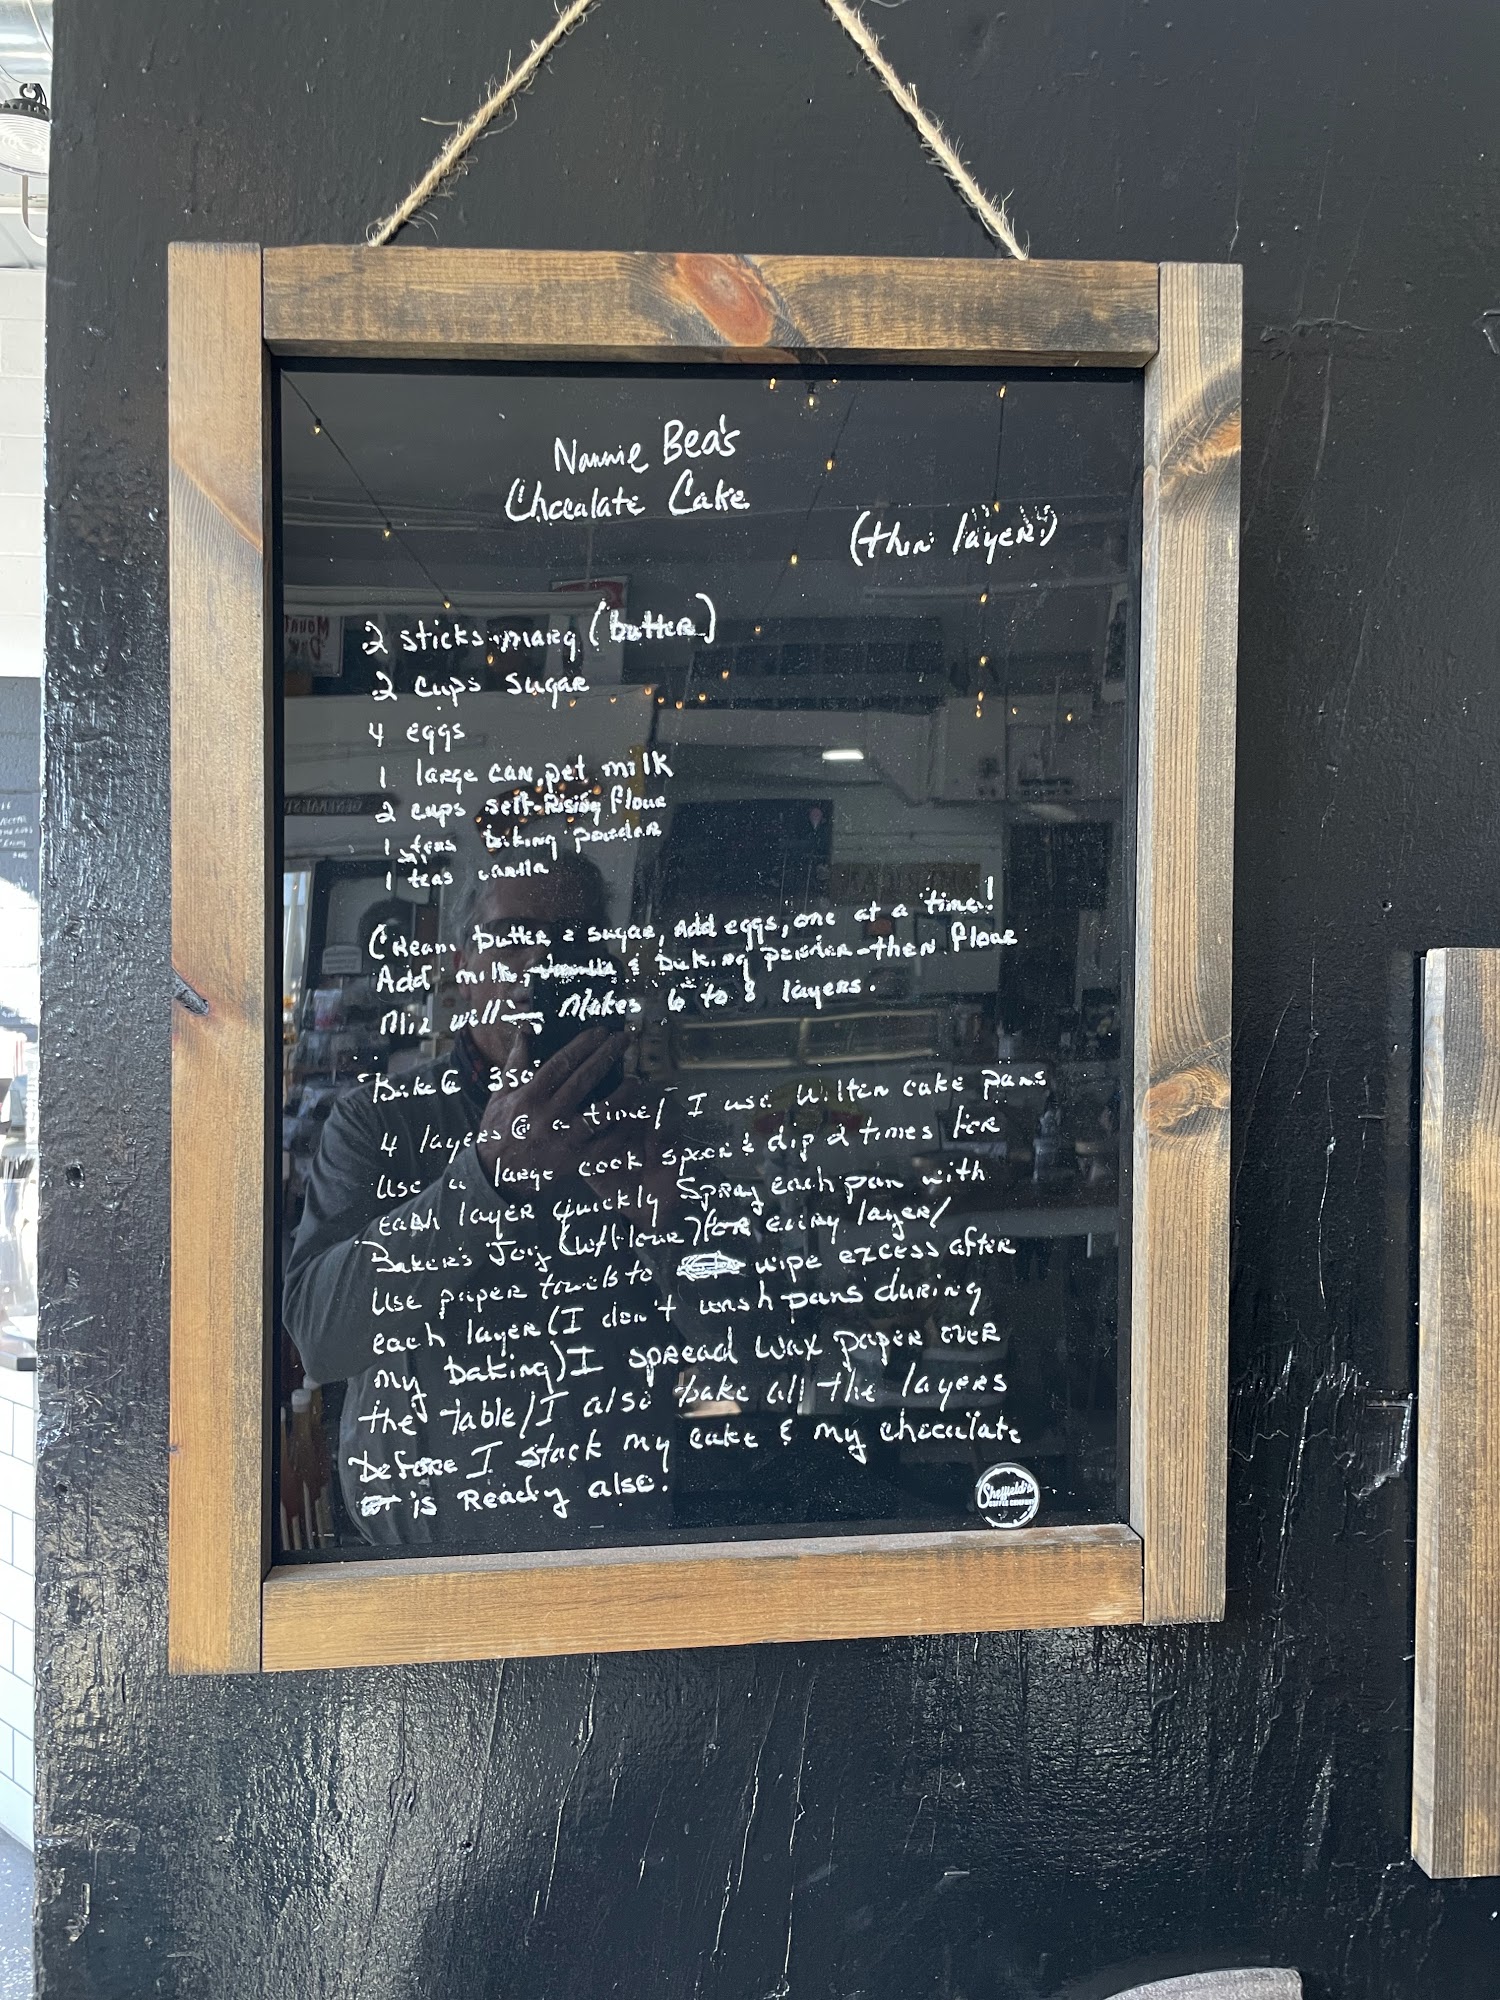 Nannie Bea's
Chocolate Cake
(thin layers)
2 sticks marg (butter)
2 cups sugar
4 eggs
1 large can pet milk
2 cups self-Rising flour
1 teas baking powder
1 teas vanilla
Cream butter & sugar, Add eggs, one at a time!
Add milk, vanilla & baking powder - then flour
Mix well - Makes 6 to 8 layers.
Bake @ 350°
4 layers @ a time/ I use Wilten cake pans
Use a large cook spoon & dip 2 times for
each layer quickly Spray each pan with
Baker's Joy (w/flour) for every layer/
Use paper towels to wipe excess after
each layer (I don't wash pans during
my baking) I spread wax paper over
the table/I also bake all the layers
Before I stack my cake & my chocolate
is Ready also!
Sheffield's
COFFEE COMPANY